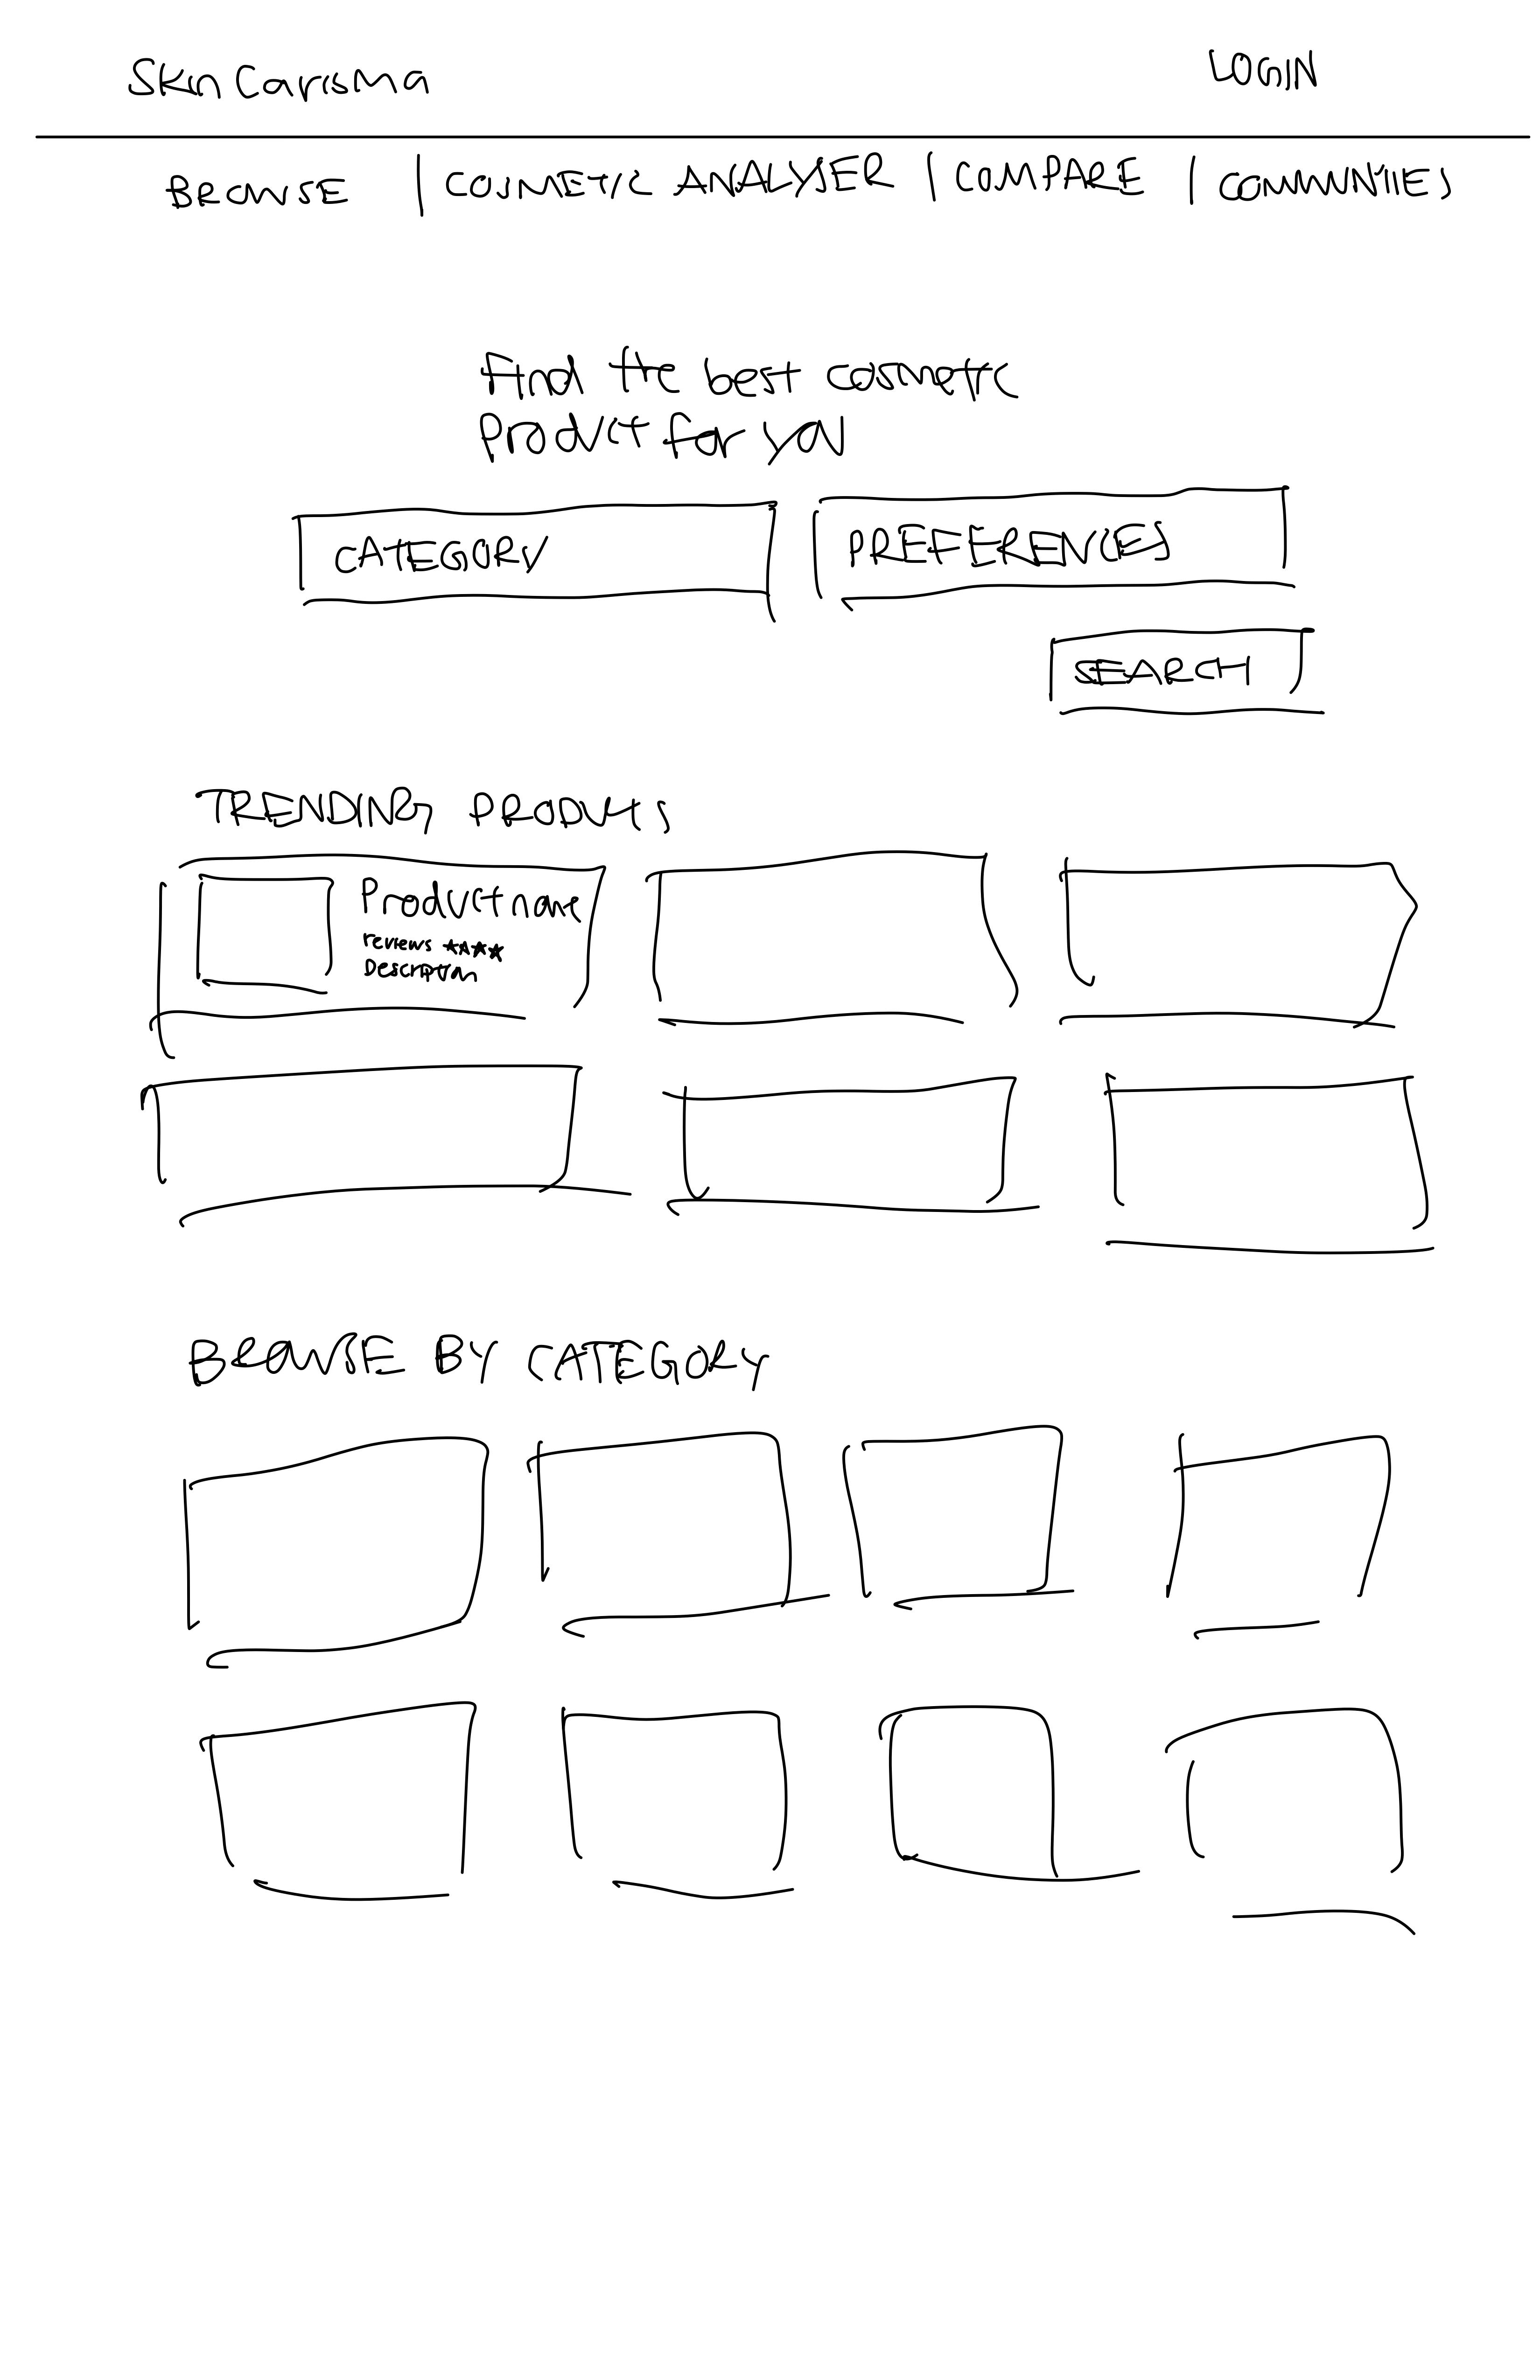 SkinCarisma LOGIN
BROWSE | COSMETIC ANALYSER | COMPARE | COMMUNITIES
Find the best cosmetic
Product for you
CATEGORY PREFERENCES
SEARCH
TRENDING PRODUCTS
Product name
reviews ★★★★
Description
BROWSE BY CATEGORY